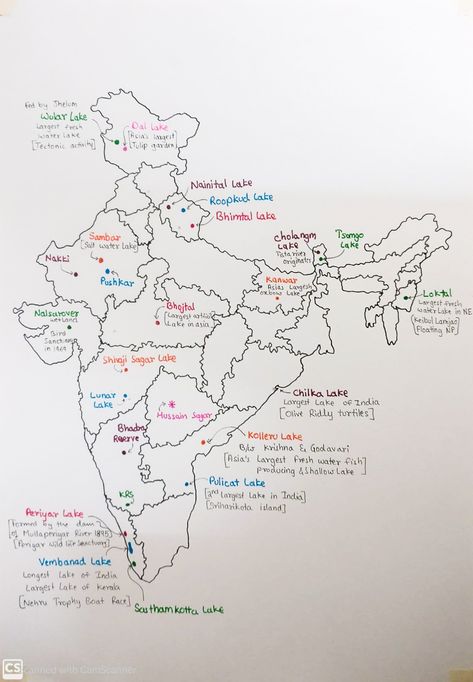 fed by Jhelum
Wular Lake
Largest fresh
water lake
[Tectonic activity]
Dal Lake
[Asia's largest
Tulip garden]
Nainital Lake
Roopkud Lake
Bhimtal Lake
Cholangm
Lake
originates
Tsomgo
Lake
Sambar
[Salt water Lake]
Nakki
Pushkar
Kanwar
Asias Largest
oxbow Lake
Loktal
Largest fresh
water Lake in NE
(Keibul Lamjao)
Floating NP
Nalsarover
wetland
Bird
Sanctuary
in 1969
Bhojtal
[Largest artifi
Lake in asia
Shivaji Sagar Lake
Lunar
Lake
Hussain Sagar
Chilka Lake
Largest Lake of India
[Olive Ridly turtles]
Bhadra
Reserve
Kolleru Lake
B/w Krishna & Godavari
[Asia's Largest fresh water fish]
producing & Shallow Lake
KRS
Pulicat Lake
[2nd Largest Lake in India]
[Sriharikota island]
Periyar Lake
[formed by the dam
of Mullaperiyar River 1895]
[Periyar wild life Sanctuary]
Vembanad Lake
Longest Lake of India
Largest Lake of Kerala
[Nehru Trophy Boat Race]
Sasthamkotta Lake
CS Scanned with CamScanner